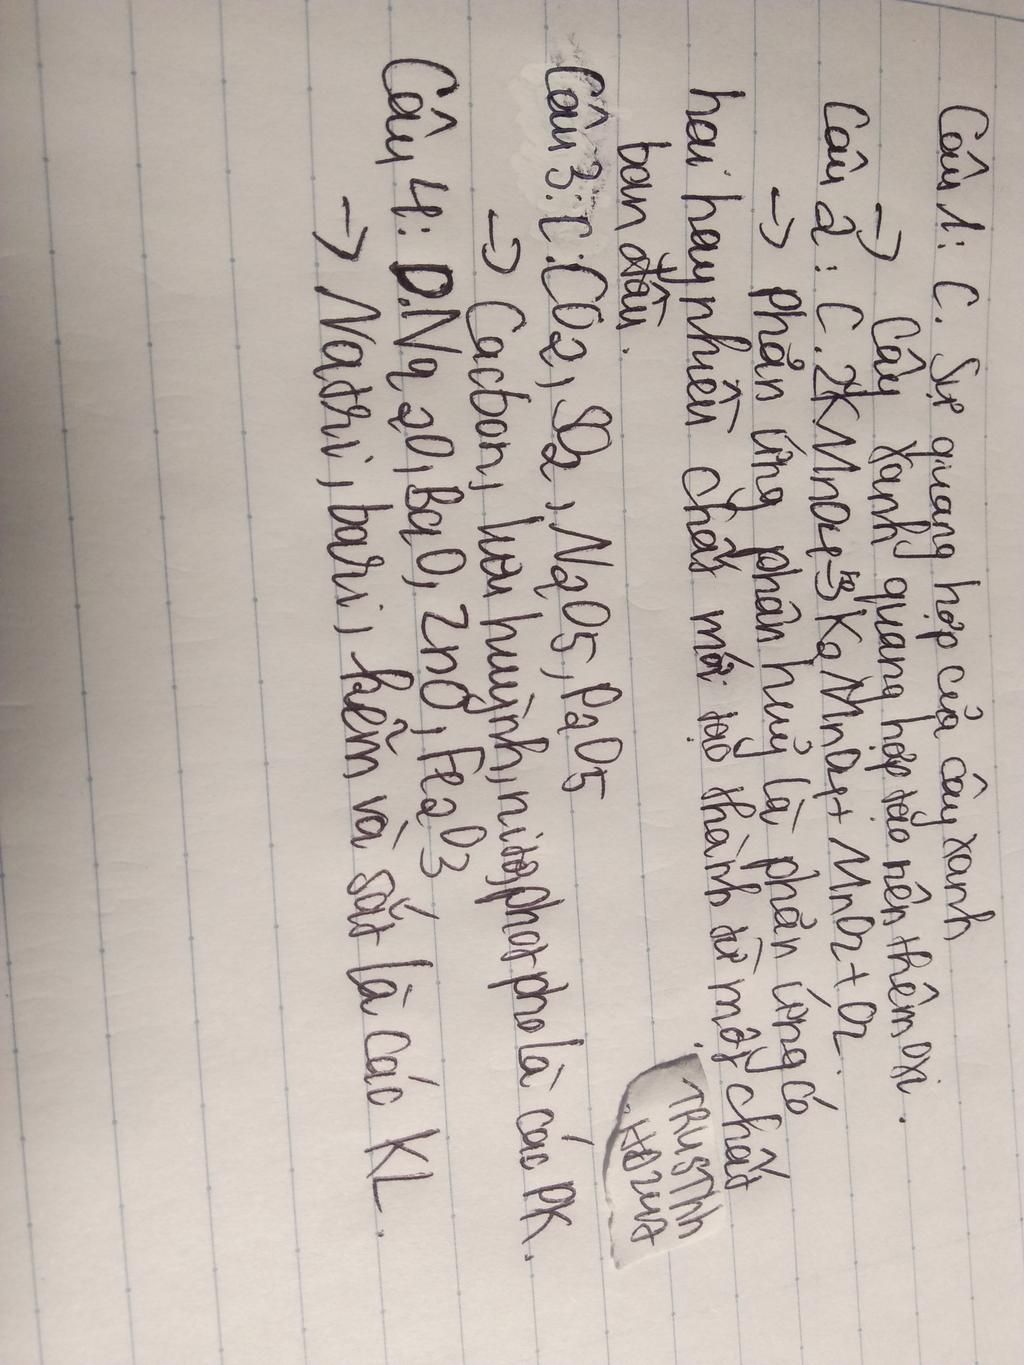 Câu 1: C. Sự quang hợp của cây xanh
→ Cây xanh quang hợp tạo nên thêm oxi.
Câu 2: C. 2KMnO4 → K2MnO4 + MnO2 + O2.
→ phản ứng phân huỷ là phản ứng có
hai hay nhiều chất mới tạo thành từ một chất
ban đầu.
Câu 3: C. CO2, SO2, N2O5, P2O5
→ Cacbon, lưu huỳnh, nitơ, photpho là các PK.
Câu 4: D. Na2O, BaO, ZnO, Fe2O3
→ Natri, bari, kẽm và sắt là các KL.